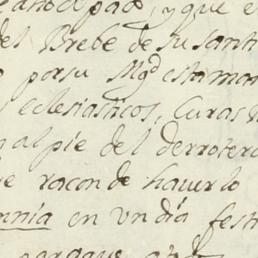 y que e
del Brebe de su santi
por su Mgd esta man
eclesiasticos, Curas
al pie del derrotero
e racon de haverlo
nnia en vn dia festi